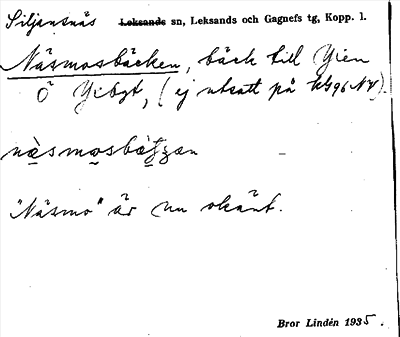 Siljansnäs Leksands sn, Leksands och Gagnefs tg, Kopp. l.
Näsmosbäcken, bäck till Yien
Ö Yibgt, (ej utsatt på kbl 96 NV).
nä̀smosbä̀ʒʒän
"Näsmo" är nu okänt.
Bror Lindén 1935.